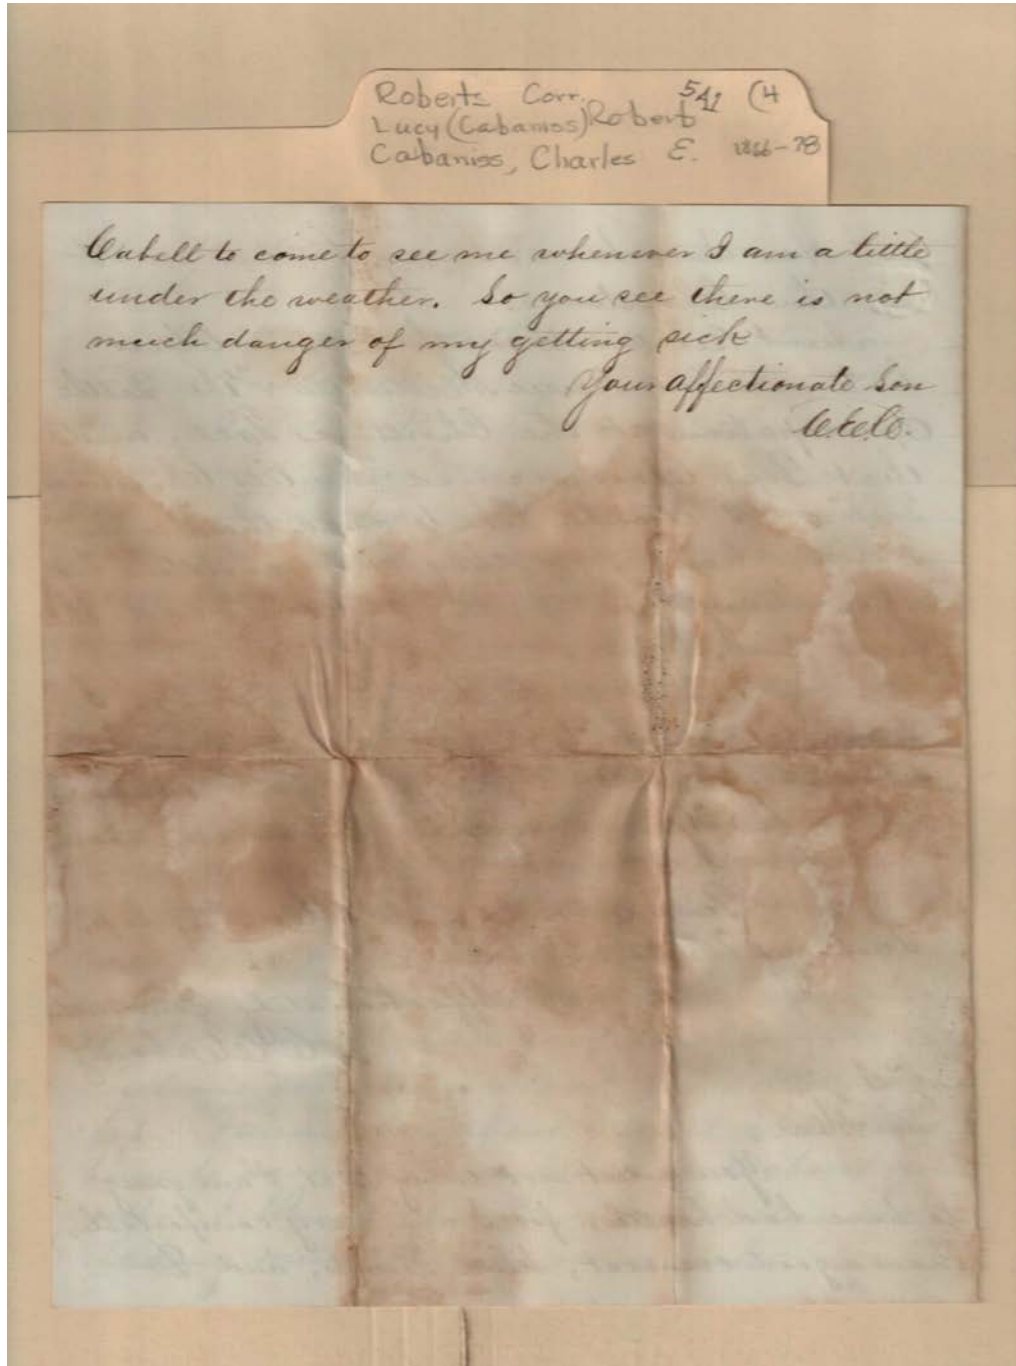 Roberts Corr. 541 (4
Lucy (Cabaniss) Robert
Cabaniss, Charles E. 1866-78
Cabell to come to see me whenever I am a little
under the weather. So you see there is not
much danger of my getting sick
Your affectionate Son
C.E.C.